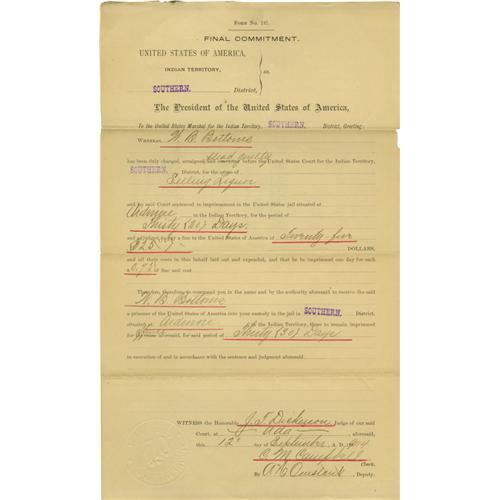 FORM No. 145.
FINAL COMMITMENT.
UNITED STATES OF AMERICA,
INDIAN TERRITORY, } ss.
SOUTHERN. District,
The President of the United States of America,
To the United States Marshal for the Indian Territory, SOUTHERN. District, Greeting:
WHEREAS, W. B. Bottoms
has been duly charged, arraigned and plead guilty before the United States Court for the Indian Territory,
SOUTHERN. District, for the crime of
Selling Liquor
and by said Court sentenced to imprisonment in the United States jail situated at
Ardmore in the Indian Territory, for the period of
Thirty (30) Days
and adjudged to pay a fine to the United States of America of Twenty five
$25 DOLLARS,
and all their costs in this behalf laid out and expended, and that he be imprisoned one day for each
of fine and cost
Therefore, therefore to command you in the name and by the authority aforesaid to receive the said
W. B. Bottoms
a prisoner of the United States of America into your custody in the jail in SOUTHERN. District,
situated at Ardmore in the Indian Territory, there to remain imprisoned
for aforesaid, for said period of Thirty (30) Days
in execution of and in accordance with the sentence and judgment aforesaid.
WITNESS the Honorable J. T. Dickerson Judge of our said
Court, at Ada aforesaid,
this 12" day of September A. D. 1904
C. M. Campbell
Clerk.
By Deputy